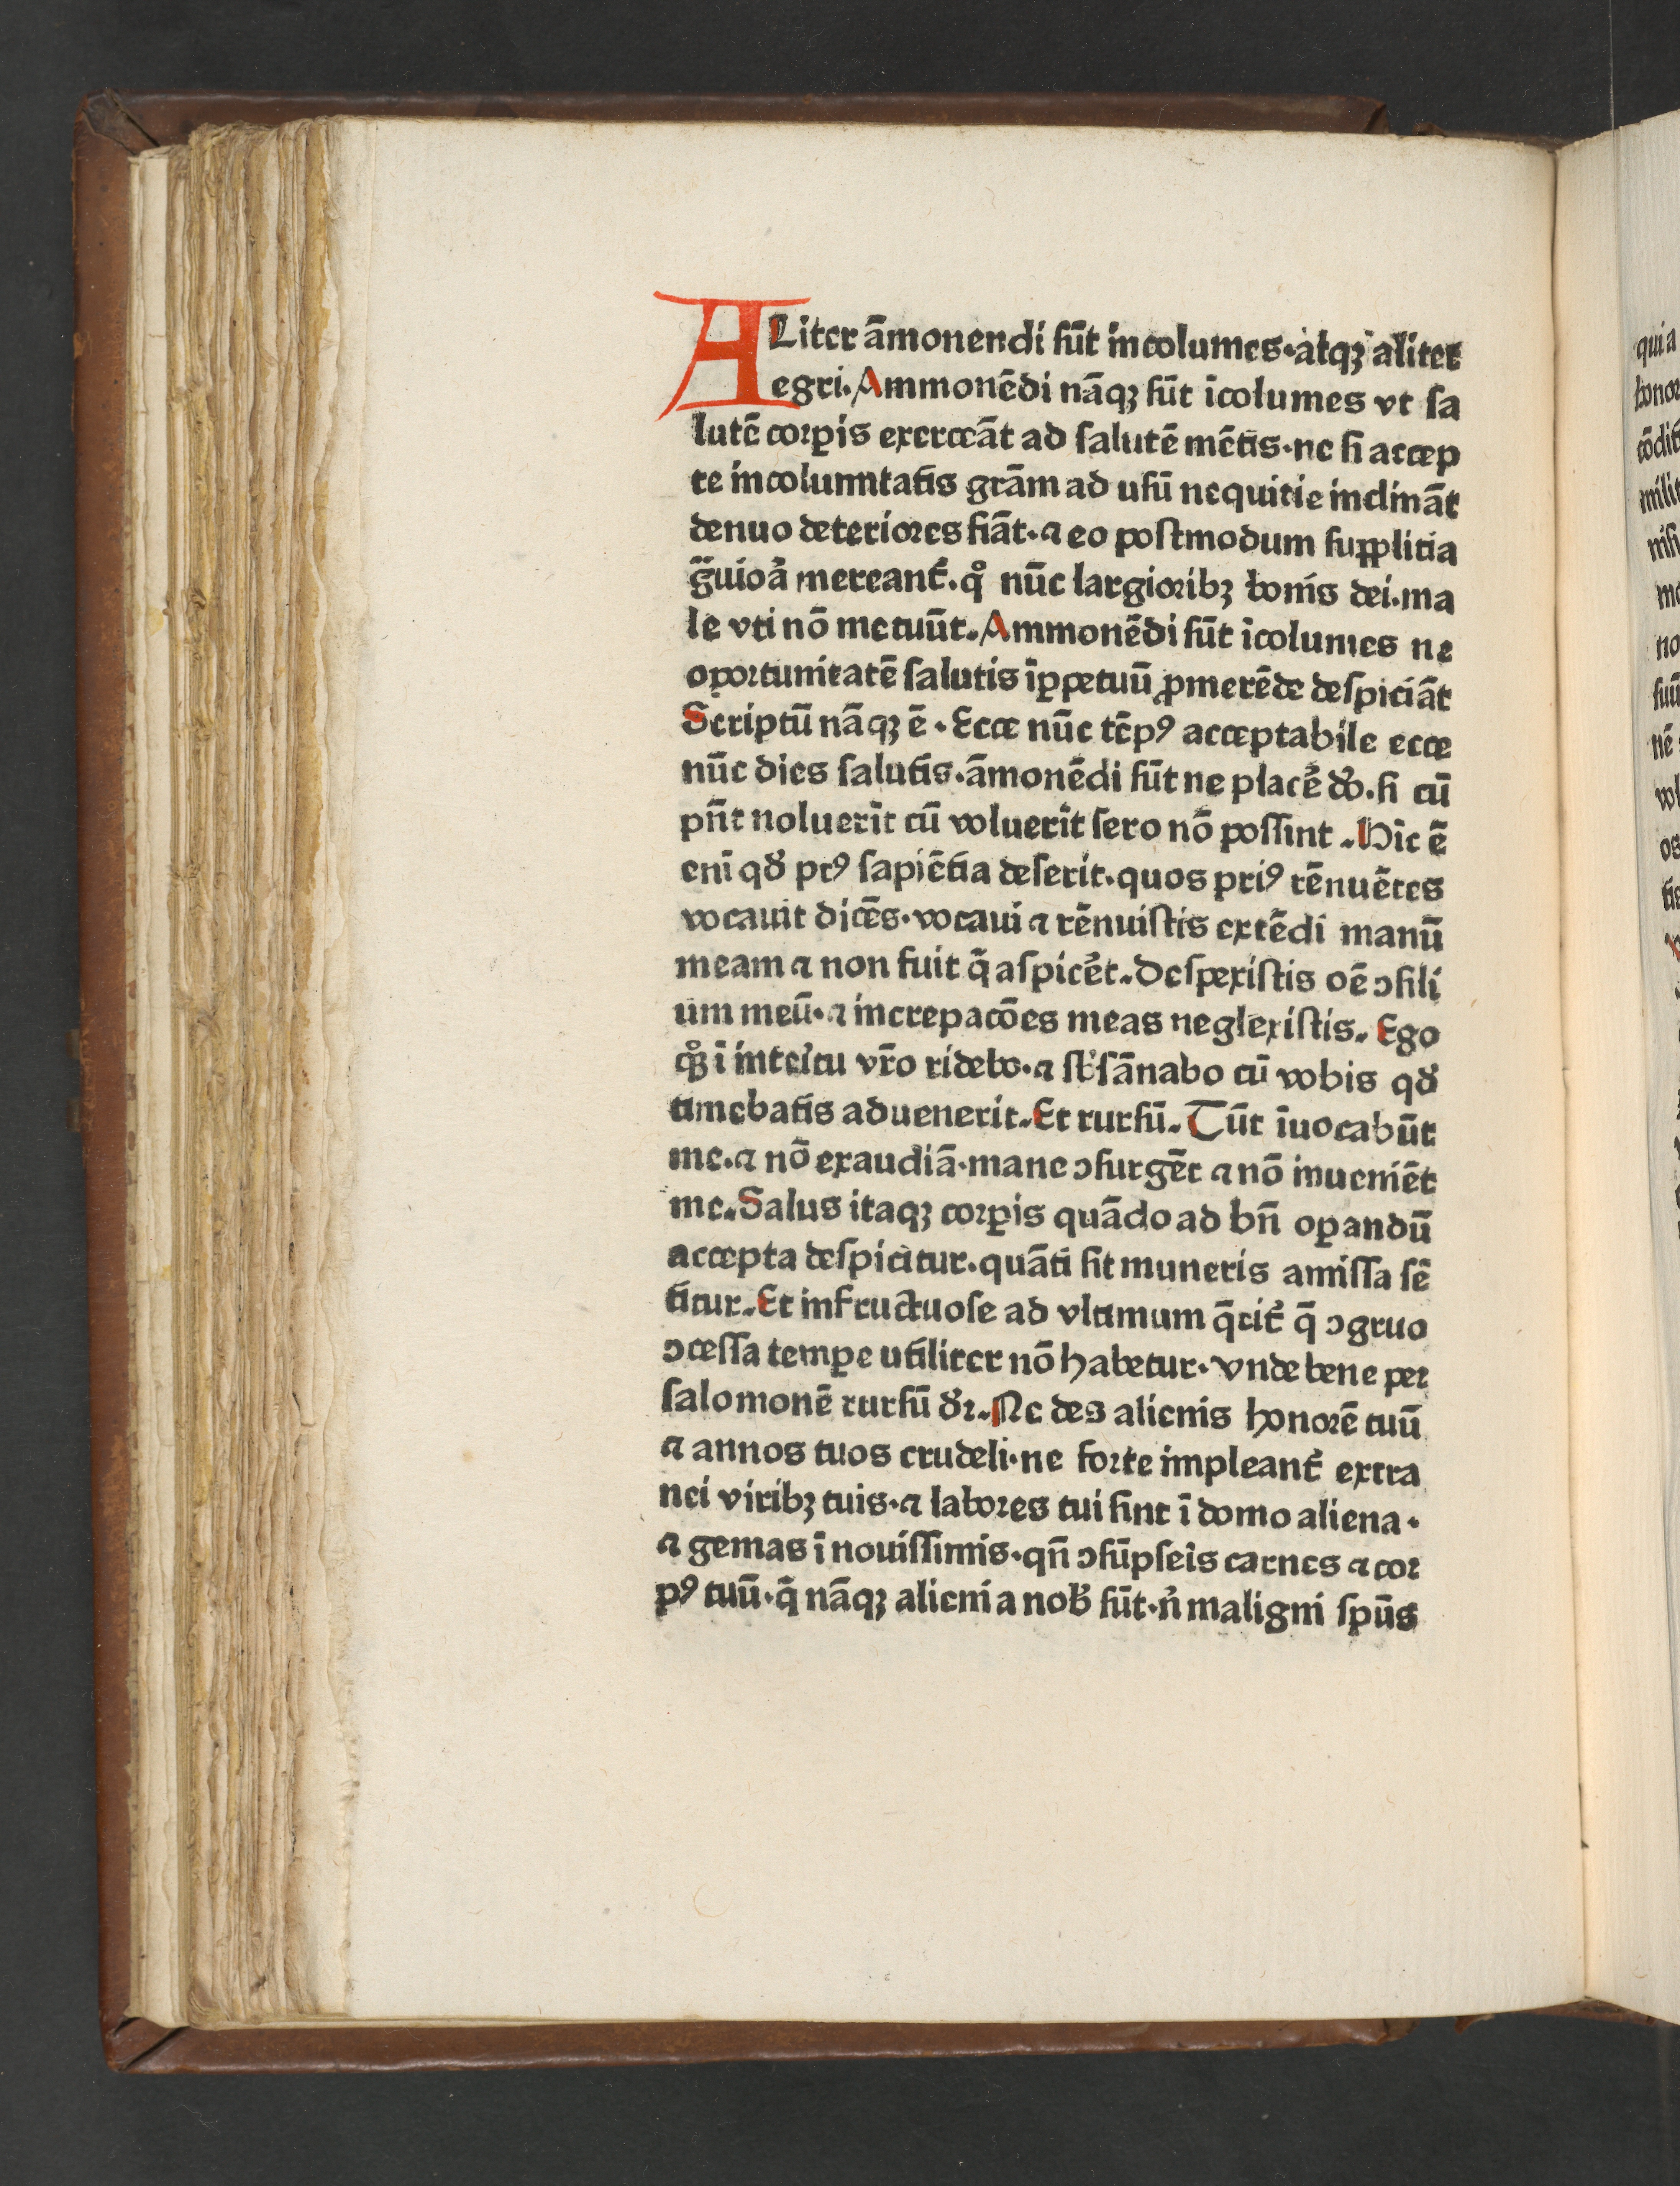 ALiter ãmonendi sũt incolumes·atqꝫ aliter
egri. Ammonẽdi nãqꝫ sũt ĩcolumes vt sa
lutẽ corꝑis exerceãt ad salutẽ mẽtis·ne si accep
te incolumitatis grãm ad usũ nequitie inclinãt
denuo deteriores fiãt·⁊ eo postmodum supplitia
g̃uioꝛa mereant̃.qͦ nũc largioribꝫ bonis dei.ma
le vti nõ metuũt. Ammonẽdi sũt ĩcolumes ne
oportunitatẽ salutis ĩꝑpetuũ ꝓmerẽde despiciãt
Scriptũ nãqꝫ ẽ. Ecce nũc tẽpꝰ acceptabile ecce
nũc dies salutis·ãmonẽdi sũt ne placẽ do.si cũ
pñt noluerĩt cũ voluerĩt sero nõ possint. Hic ẽ
enĩ qď ptꝰ sapiẽtia deserit.quos priꝰ rẽnuẽtes
vocauit dicẽs·vocaui ⁊ rẽnuistis extẽdi manũ
meam ⁊ non fuit q̃ aspicẽt. Despexistis oẽ ↄsili
um meũ·⁊ increpacões meas neglexistis. Ego
qͦꝫ ĩ interitu vr̃o ridebo·⁊ sb̾sãnabo cũ vobis qď
timebatis aduenerit. Et rursũ. Tũt ĩuocabũt
me.⁊ nõ exaudiã·mane ↄsurgẽt ⁊ nõ inueniẽt
me. Salus itaqꝫ corꝑis quãdo ad bñ oꝑandũ
accepta despicitur·quãti sit muneris amissa sẽ
titur. Et infructuose ad vltimum q̃rit̃ q̃ ↄgruo
ↄcessa tempe utiliter nõ habetur·vnde bene per
salomonẽ rursũ dr̃. Ne des alienis honorẽ tuũ
⁊ annos tuos crudeli·ne forte impleant̃ extra
nei viribꝫ tuis·⁊ labores tui sint ĩ domo aliena·
⁊ gemas ĩ nouissimis·qñ ↄsũpseĩs carnes ⁊ cor
pꝰ tuũ·q̃ nãqꝫ alieni a nob̾ sũt·n̾ maligni spũs